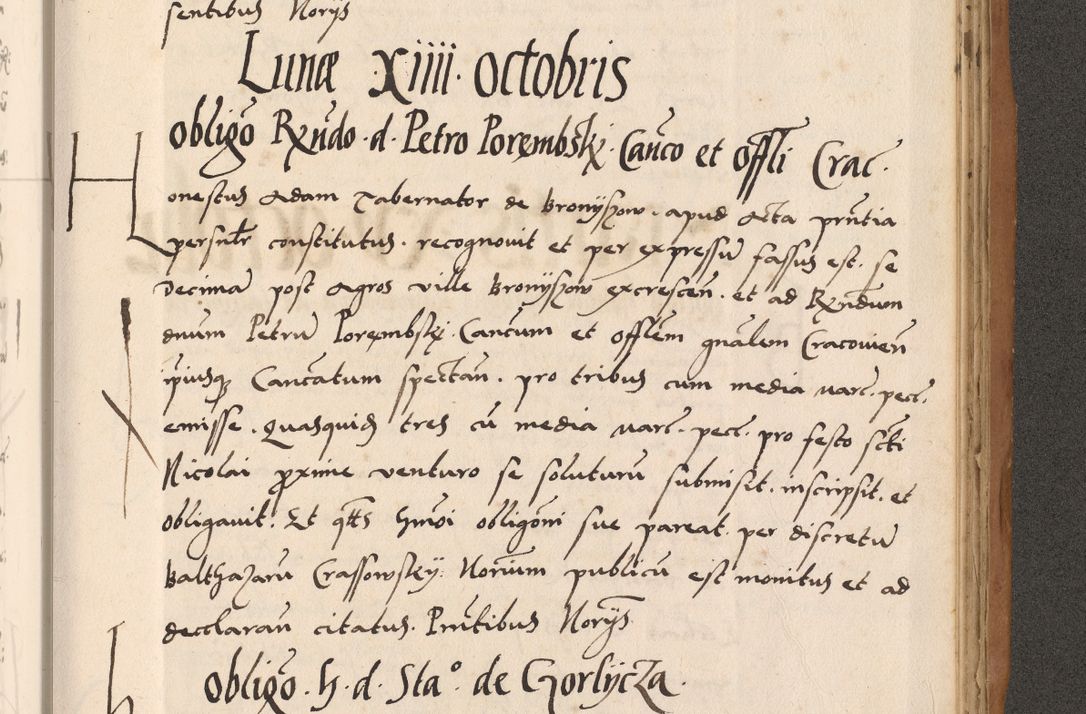 sentibus Norijs
Lunæ xiiii octobris
obligõ Rxñdo d. Petro Porembskj Cañco et offli Crac.
Honestus Adam Tabernator de Bronijszow. apud Acta prñtia
persnlr constitutus. recognouit et per expressũ fassus est. se
Decimã post Agros ville Bronijszow excrescen. et ad Rxñdum
dnum Petrũ Porembskj. Cancum et offlem gnãlem Cracouien
ipiusq Cancatum spectan. pro tribus cum media marc. pecc.
emisse. Quasquid tres cũ media marc. pecc. pro festo scti
Nicolai proxime venturo se soluturũ submisit. inscripsit. et
obligauit. Et qtts hmoi obligõni sue pareat. per discretũ
Balthazarũ Crassowskij. Norium publicũ est monitus et ad
decclaran citatus. Prñtibus Norijs
obligõ. h. d. Sta°. de Gorlijcza.